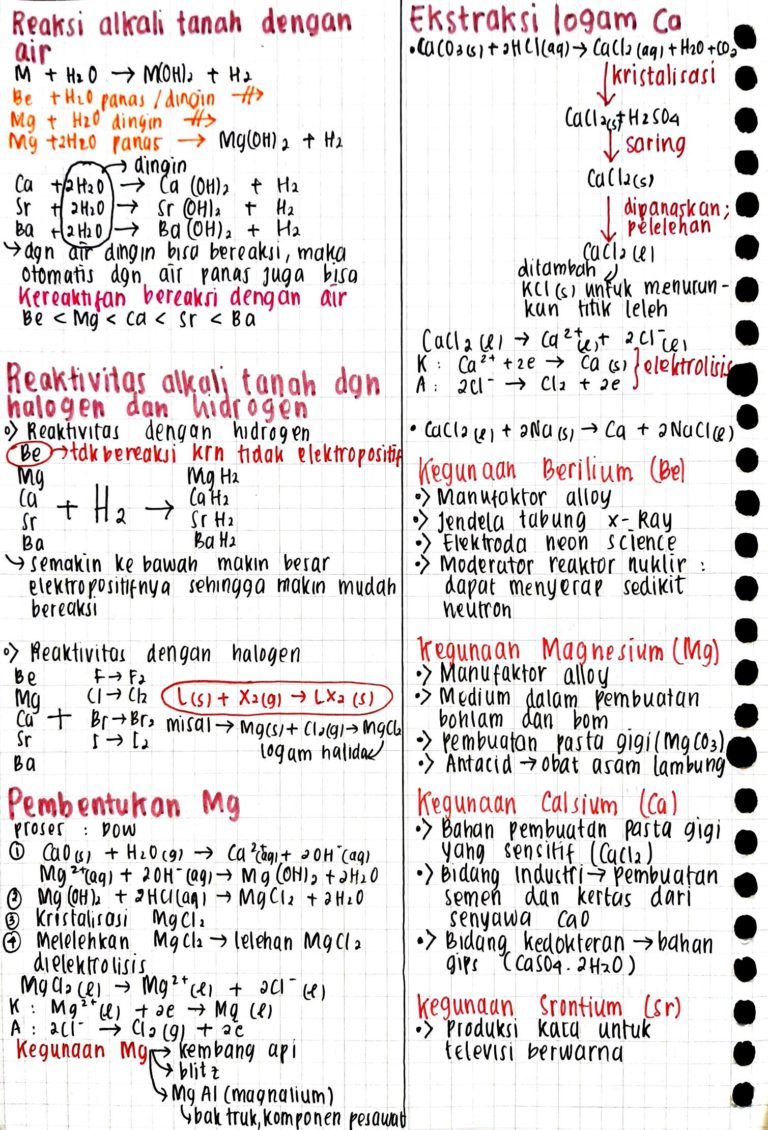 Reaksi alkali tanah dengan
air
M + H2O → M(OH)2 + H2
Be + H2O panas / dingin ↛
Mg + H2O dingin ↛
Mg + 2H2O panas → Mg(OH)2 + H2
→ dingin
Ca + 2H2O → Ca (OH)2 + H2
Sr + 2H2O → Sr (OH)2 + H2
Ba + 2H2O → Ba (OH)2 + H2
↳ dgn air dingin bisa bereaksi, maka
otomatis dgn air panas juga bisa
Kereaktifan bereaksi dengan air
Be < Mg < Ca < Sr < Ba
Reaktivitas alkali tanah dgn
halogen dan hidrogen
o> Reaktivitas dengan hidrogen
Be → tdk bereaksi krn tidak elektropositif
Mg MgH2
Ca CaH2
+ H2 →
Sr SrH2
Ba BaH2
↳ semakin ke bawah makin besar
elektropositifnya sehingga makin mudah
bereaksi
o> Reaktivitas dengan halogen
Be F → F2
Mg Cl → Cl2 L(s) + X2(g) → LX2 (s)
Ca + Br → Br2 misal → Mg(s) + Cl2(g) → MgCl2
Sr I → I2 logam halida
Ba
Pembentukan Mg
proses : DOW
① CaO(s) + H2O(g) → Ca2+(aq) + 2OH-(aq)
Mg2+(aq) + 2OH-(aq) → Mg(OH)2 + 2H2O
② Mg(OH)2 + 2HCl(aq) → MgCl2 + 2H2O
③ Kristalisasi MgCl2
④ Melelehkan MgCl2 → lelehan MgCl2
dielektrolisis
MgCl2(l) → Mg2+(l) + 2Cl-(l)
K : Mg2+(l) + 2e → Mg (l)
A : 2Cl- → Cl2(g) + 2e
Kegunaan Mg → kembang api
→ blitz
↳ Mg Al (magnalium)
↳ bak truk, komponen pesawat
Ekstraksi logam Ca
• CaCO3(s) + 2HCl(aq) → CaCl2(aq) + H2O + CO2
↓ kristalisasi
CaCl2(s) + H2SO4
↓ saring
CaCl2(s)
↓ dipanaskan;
pelelehan
CaCl2(l)
ditambah
KCl(s) untuk menurun-
kan titik leleh
CaCl2(l) → Ca2+(l) + 2Cl-(l)
K : Ca2+ + 2e → Ca (s) } elektrolisis
A : 2Cl- → Cl2 + 2e
• CaCl2(l) + 2Na(s) → Ca + 2NaCl(l)
Kegunaan Berilium (Be)
•> Manufaktor alloy
•> Jendela tabung x-Ray
•> Elektroda neon science
•> Moderator reaktor nuklir :
dapat menyerap sedikit
neutron
Kegunaan Magnesium (Mg)
•> Manufaktor alloy
•> Medium dalam pembuatan
bohlam dan bom
•> pembuatan pasta gigi (MgCO3)
•> Antacid → obat asam lambung
Kegunaan Calsium (Ca)
•> Bahan pembuatan pasta gigi
yang sensitif (CaCl2)
•> Bidang Industri → pembuatan
semen dan kertas dari
senyawa CaO
•> Bidang kedokteran → bahan
gips (CaSO4 . 2H2O)
Kegunaan Srontium (Sr)
•> produksi kaca untuk
televisi berwarna